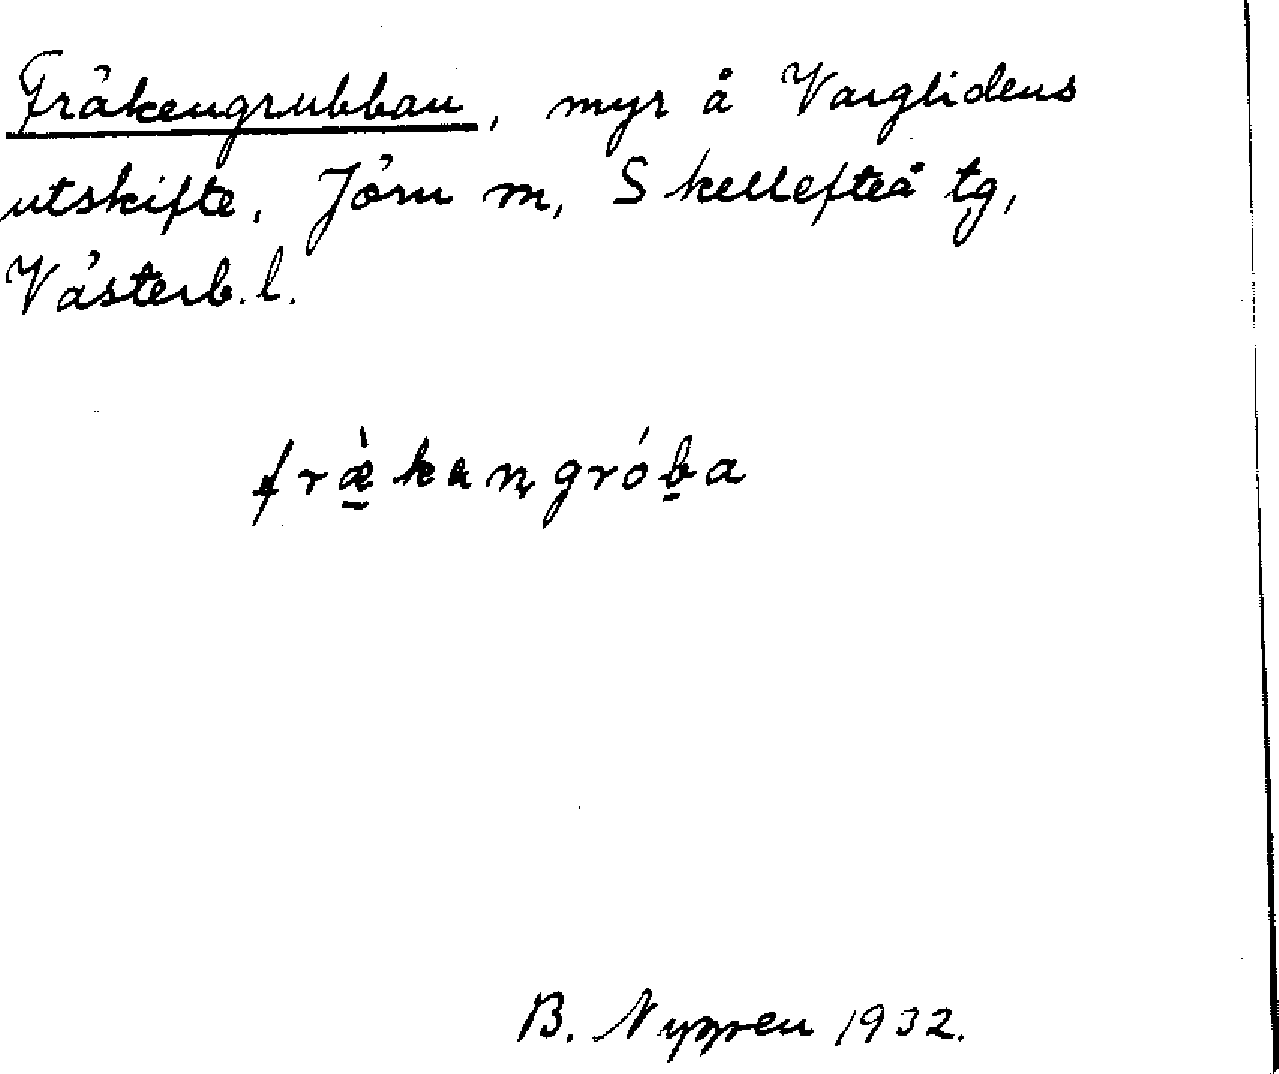 Fräkengrubban, myr å Varglidens
utskifte, Jörn m, Skellefteå tg,
Västerb. l.
fræ̀kangróba
B. Nygren 1932.